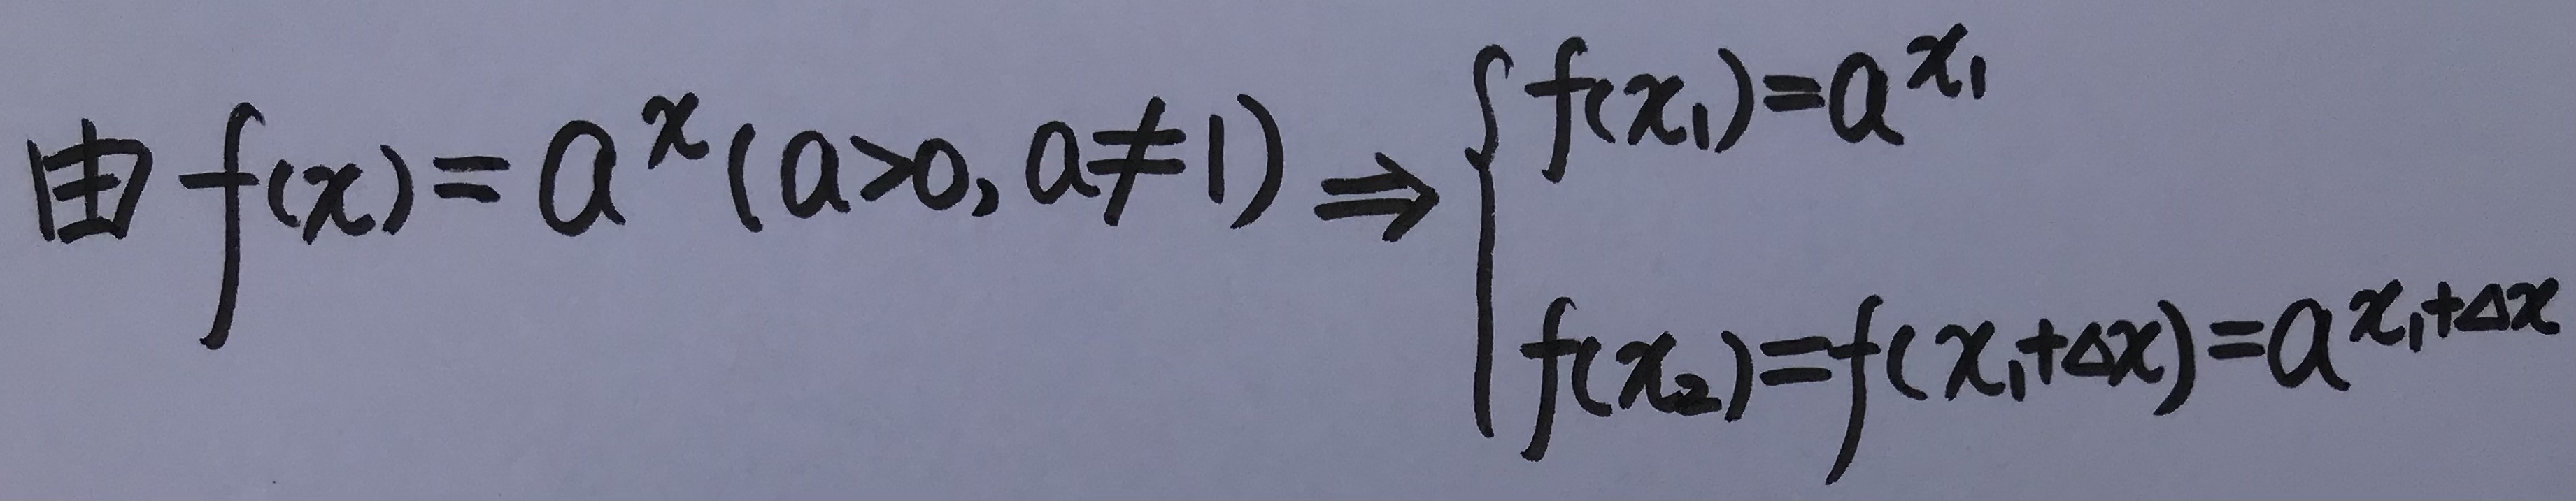 由 f(x) = a^x (a>0, a≠1) ⇒ { f(x₁)=a^{x₁}
f(x₂)=f(x₁+△x)=a^{x₁+△x}